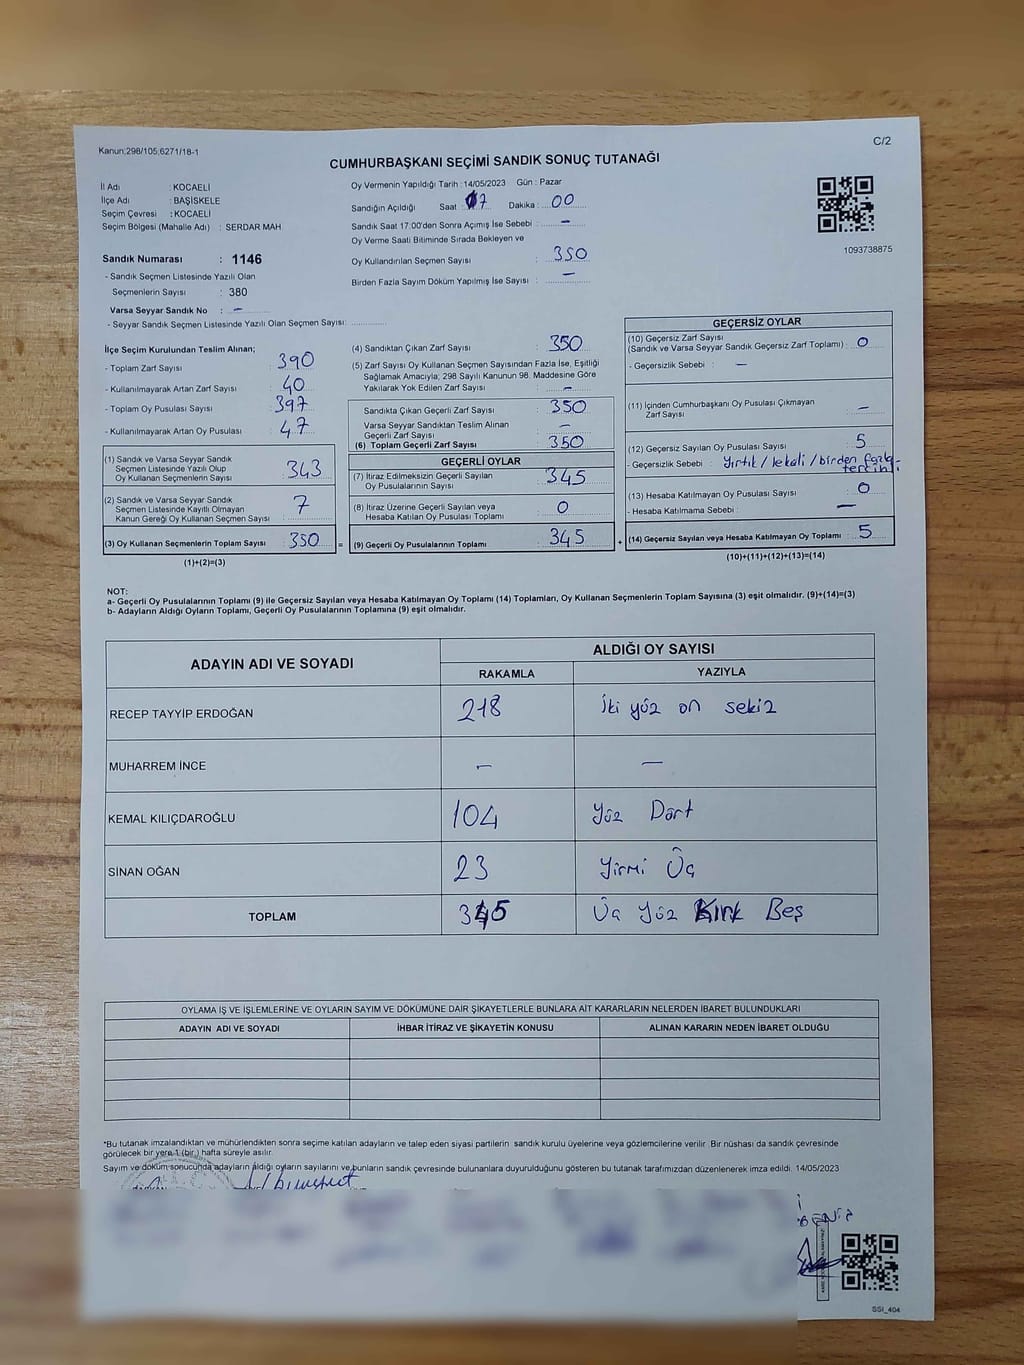 Kanun;298/105;6271/18-1
C/2
CUMHURBAŞKANI SEÇİMİ SANDIK SONUÇ TUTANAĞI
İl Adı : KOCAELİ
İlçe Adı : BAŞİSKELE
Seçim Çevresi : KOCAELİ
Seçim Bölgesi (Mahalle Adı) : SERDAR MAH
Oy Vermenin Yapıldığı Tarih :14/05/2023 Gün : Pazar
Sandığın Açıldığı Saat 17 Dakika : 00
Sandık Saat 17:00'den Sonra Açımış İse Sebebi : –
Oy Verme Saati Bitiminde Sırada Bekleyen ve
Oy Kullandırılan Seçmen Sayısı : 350
Birden Fazla Sayım Döküm Yapılmış İse Sayısı : –
1093738875
Sandık Numarası : 1146
- Sandık Seçmen Listesinde Yazılı Olan
Seçmenlerin Sayısı : 380
Varsa Seyyar Sandık No : –
- Seyyar Sandık Seçmen Listesinde Yazılı Olan Seçmen Sayısı:
İlçe Seçim Kurulundan Teslim Alınan;
- Toplam Zarf Sayısı : 390
- Kullanılmayarak Artan Zarf Sayısı : 40
- Toplam Oy Pusulası Sayısı : 397
- Kullanılmayarak Artan Oy Pusulası : 47
(1) Sandık ve Varsa Seyyar Sandık
Seçmen Listesinde Yazılı Olup
Oy Kullanan Seçmenlerin Sayısı : 343
(2) Sandık ve Varsa Seyyar Sandık
Seçmen Listesinde Kayıtlı Olmayan
Kanun Gereği Oy Kullanan Seçmen Sayısı : 7
(3) Oy Kullanan Seçmenlerin Toplam Sayısı : 350 =
(1)+(2)=(3)
(4) Sandıktan Çıkan Zarf Sayısı : 350
(5) Zarf Sayısı Oy Kullanan Seçmen Sayısından Fazla İse, Eşitliği
Sağlamak Amacıyla; 298 Sayılı Kanunun 98. Maddesine Göre
Yakılarak Yok Edilen Zarf Sayısı : –
Sandıkta Çıkan Geçerli Zarf Sayısı : 350
Varsa Seyyar Sandıktan Teslim Alınan
Geçerli Zarf Sayısı : –
(6) Toplam Geçerli Zarf Sayısı : 350
GEÇERLİ OYLAR
(7) İtiraz Edilmeksizin Geçerli Sayılan
Oy Pusulalarının Sayısı : 345
(8) İtiraz Üzerine Geçerli Sayılan veya
Hesaba Katılan Oy Pusulası Toplamı : 0
(9) Geçerli Oy Pusulalarının Toplamı : 345 +
GEÇERSİZ OYLAR
(10) Geçersiz Zarf Sayısı
(Sandık ve Varsa Seyyar Sandık Geçersiz Zarf Toplamı) : 0
- Geçersizlik Sebebi : –
(11) İçinden Cumhurbaşkanı Oy Pusulası Çıkmayan
Zarf Sayısı : –
(12) Geçersiz Sayılan Oy Pusulası Sayısı : 5
- Geçersizlik Sebebi : Yırtık / lekeli / birden fazla
tercihli
(13) Hesaba Katılmayan Oy Pusulası Sayısı : 0
- Hesaba Katılmama Sebebi : –
(14) Geçersiz Sayılan veya Hesaba Katılmayan Oy Toplamı : 5
(10)+(11)+(12)+(13)=(14)
NOT:
a- Geçerli Oy Pusulalarının Toplamı (9) ile Geçersiz Sayılan veya Hesaba Katılmayan Oy Toplamı (14) Toplamları, Oy Kullanan Seçmenlerin Toplam Sayısına (3) eşit olmalıdır. (9)+(14)=(3)
b- Adayların Aldığı Oyların Toplamı, Geçerli Oy Pusulalarının Toplamına (9) eşit olmalıdır.
ADAYIN ADI VE SOYADI
ALDIĞI OY SAYISI
RAKAMLA YAZIYLA
RECEP TAYYİP ERDOĞAN 218 İki yüz on sekiz
MUHARREM İNCE – –
KEMAL KILIÇDAROĞLU 104 Yüz Dört
SİNAN OĞAN 23 Yirmi Üç
TOPLAM 345 Üç Yüz Kırk Beş
OYLAMA İŞ VE İŞLEMLERİNE VE OYLARIN SAYIM VE DÖKÜMÜNE DAİR ŞİKAYETLERLE BUNLARA AİT KARARLARIN NELERDEN İBARET BULUNDUKLARI
ADAYIN ADI VE SOYADI İHBAR İTİRAZ VE ŞİKAYETİN KONUSU ALINAN KARARIN NEDEN İBARET OLDUĞU
*Bu tutanak imzalandıktan ve mühürlendikten sonra seçime katılan adayların ve talep eden siyasi partilerin sandık kurulu üyelerine veya gözlemcilerine verilir. Bir nüshası da sandık çevresinde
görülecek bir yere 1 (bir) hafta süreyle asılır.
Sayım ve döküm sonucunda adayların aldığı oyların sayılarını ve bunların sandık çevresinde bulunanlara duyurulduğunu gösteren bu tutanak tarafımızdan düzenlenerek imza edildi. 14/05/2023
SSİ_404